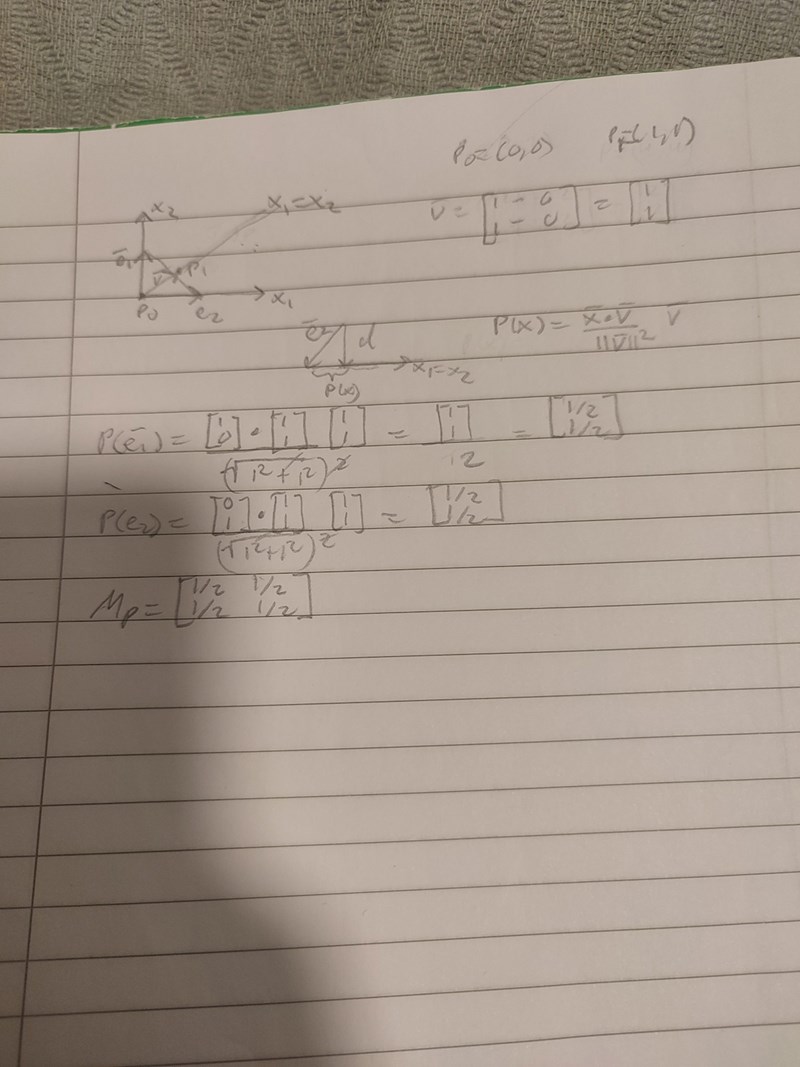 P₀=(0,0) P₁=(1,1)
x₂ x₁=x₂
v̅ = [1 - 0; 1 - 0] = [1; 1]
e̅₁ v̅ P₁
P₀ e₂ x₁
e̅₂ d P(x) = x̅•v̅/||v̅||² v̅
x₁=x₂
P(x)
P(e̅₁) = [1; 0]•[1; 1] [1; 1] / (√1²+1²)² = [1; 1] / 2 = [1/2; 1/2]
P(e₂) = [0; 1]•[1; 1] [1; 1] / (√1²+1²)² = [1/2; 1/2]
Mp = [1/2 1/2; 1/2 1/2]